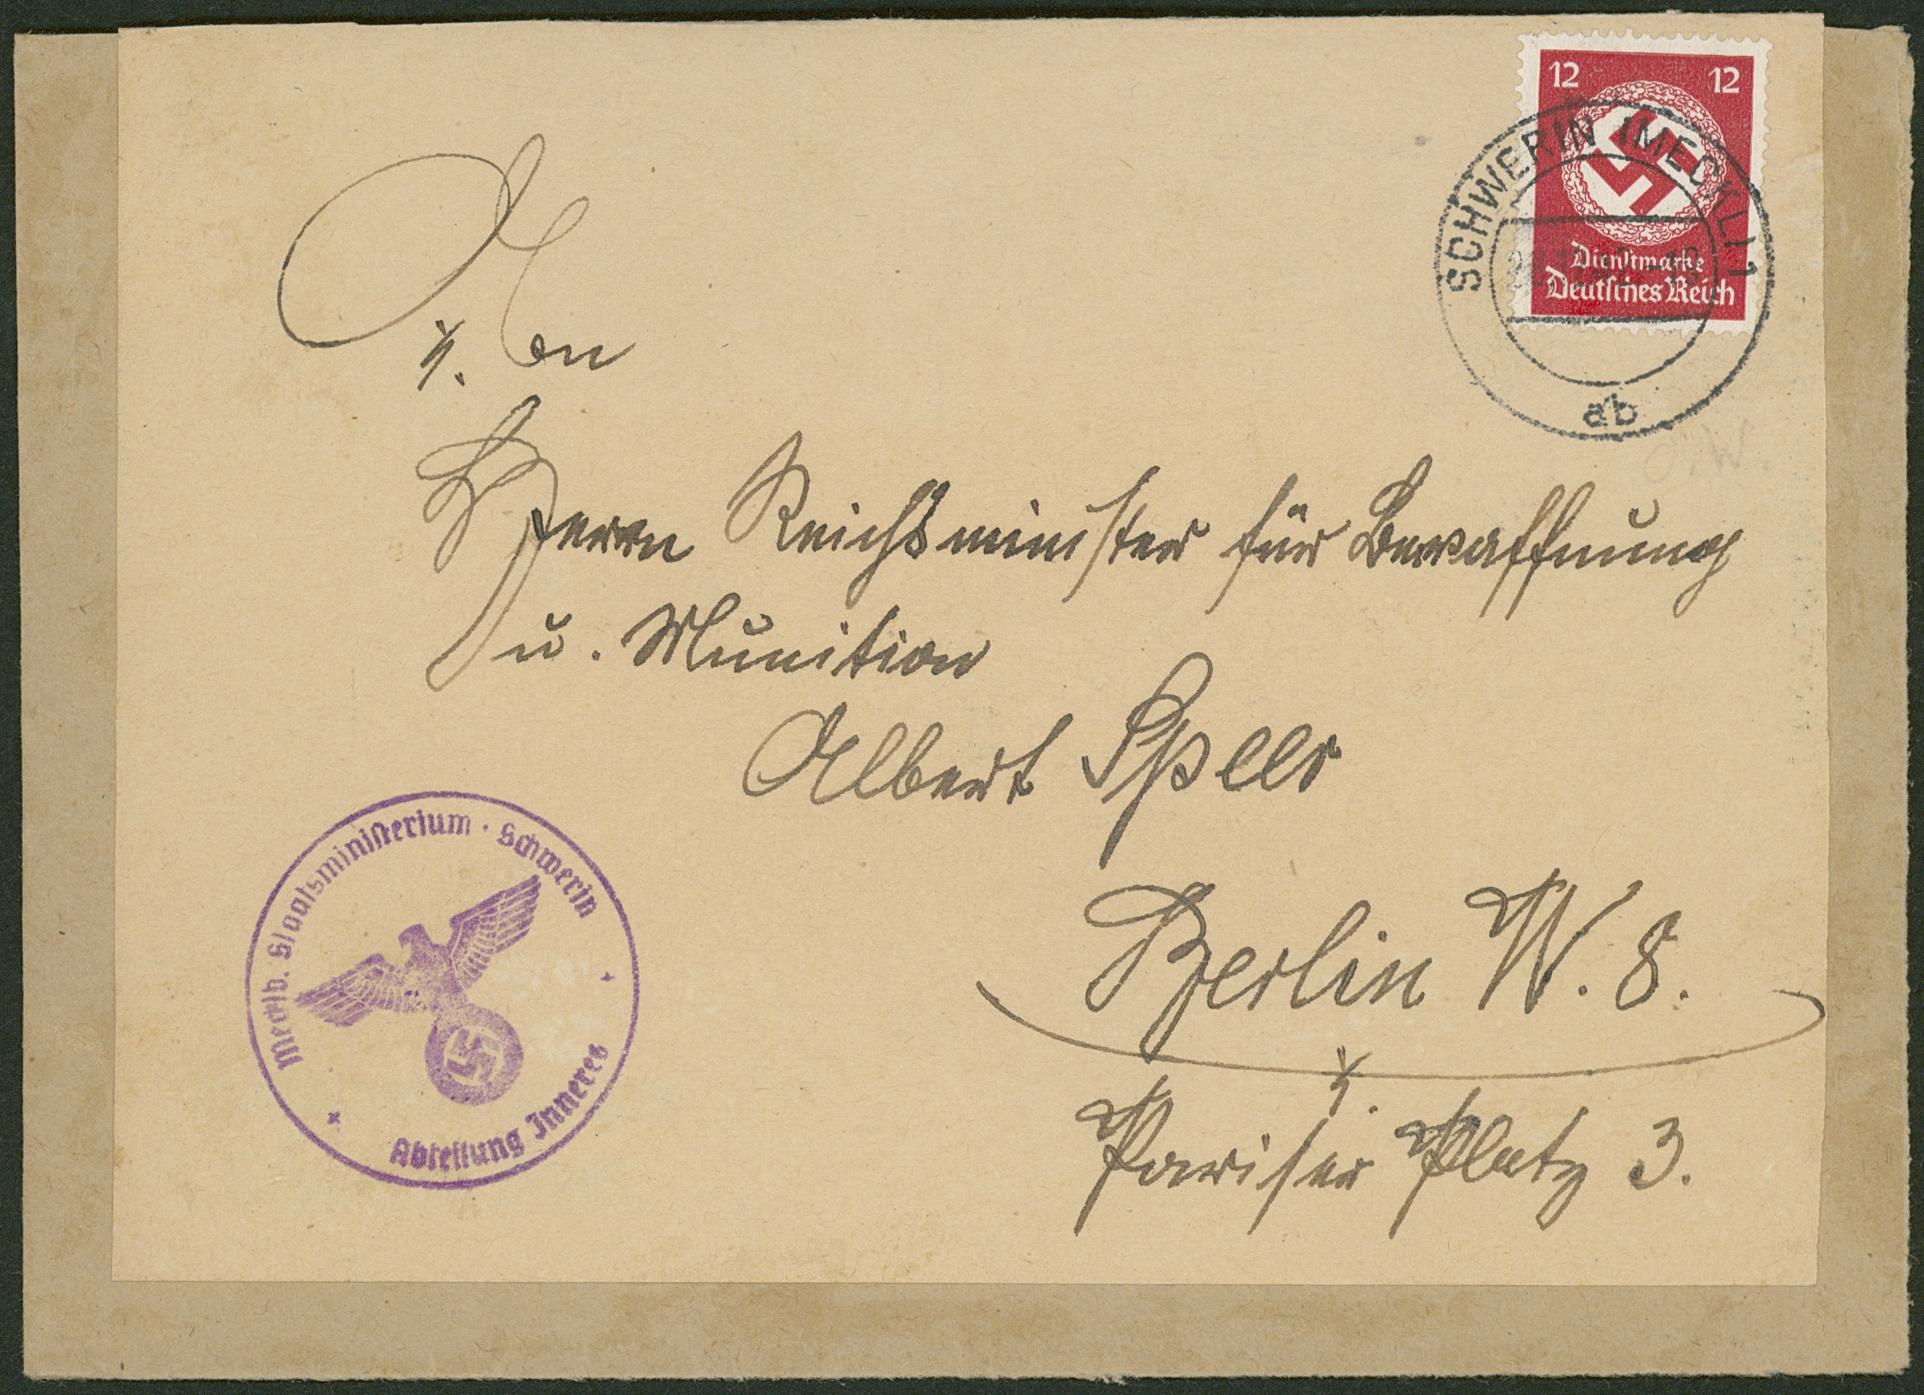 12 12
SCHWERIN (MECKL) 1
Dienstmarke
Deutsches Reich
ab
An
Herrn Reichsminister für Bewaffnung
u. Munition
Albert Speer
Berlin W. 8.
Pariser Platz 3.
Mecklb. Staatsministerium · Schwerin
Abteilung Inneres